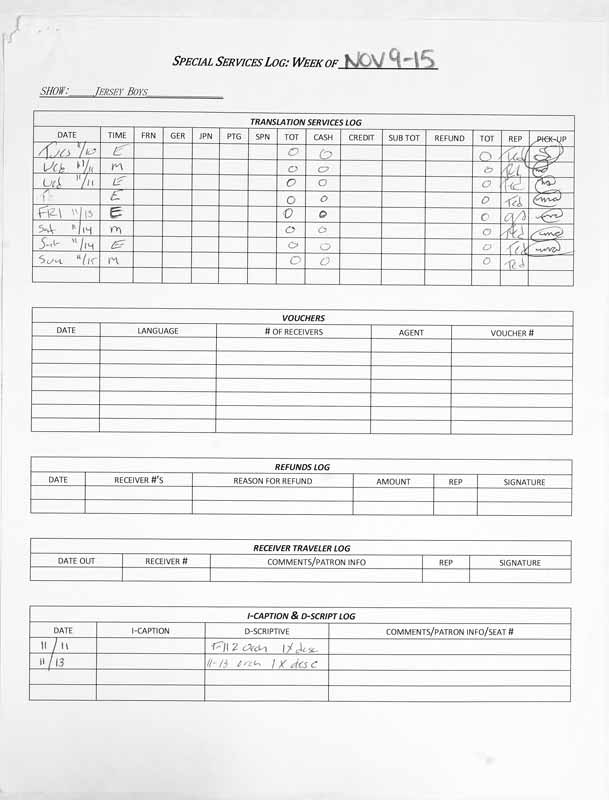 SPECIAL SERVICES LOG: WEEK OF NOV 9-15
SHOW: JERSEY BOYS
TRANSLATION SERVICES LOG
DATE TIME FRN GER JPN PTG SPN TOT CASH CREDIT SUB TOT REFUND TOT REP PICK-UP
Tues 11/10 E 0 0 0 Ted
Wed 11/11 M 0 0 0
Wed 11/11 E 0 0 0 Ted
E 0 0 0 Ted
FRI 11/13 E 0 0 0
Sat 11/14 M 0 0 0 Ted
Sat 11/14 E 0 0 0 Ted
Sun 11/15 M 0 0 0 Ted
VOUCHERS
DATE LANGUAGE # OF RECEIVERS AGENT VOUCHER #
REFUNDS LOG
DATE RECEIVER #'S REASON FOR REFUND AMOUNT REP SIGNATURE
RECEIVER TRAVELER LOG
DATE OUT RECEIVER # COMMENTS/PATRON INFO REP SIGNATURE
I-CAPTION & D-SCRIPT LOG
DATE I-CAPTION D-SCRIPTIVE COMMENTS/PATRON INFO/SEAT #
11/11 F-112 orch 1X desc
11/13 11-13 orch 1X desc